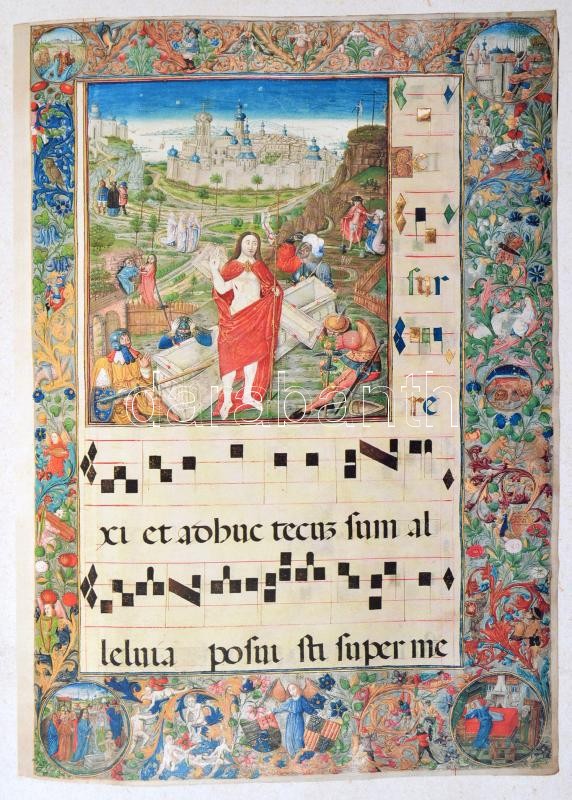 sur
re
xi et adhuc tecuz sum al
leluia posui sti super me
darabanth